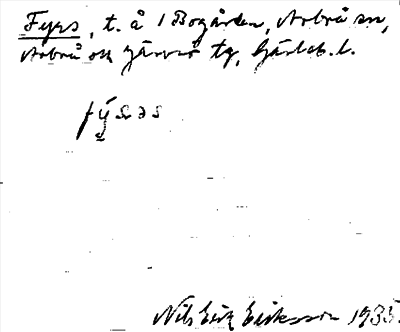 Fyrs, t. å 1 Bogården, Arbrå sn,
Arbrå och Järvsö tg, Gävleb. l.
Nils Erik Eriksson 1935.